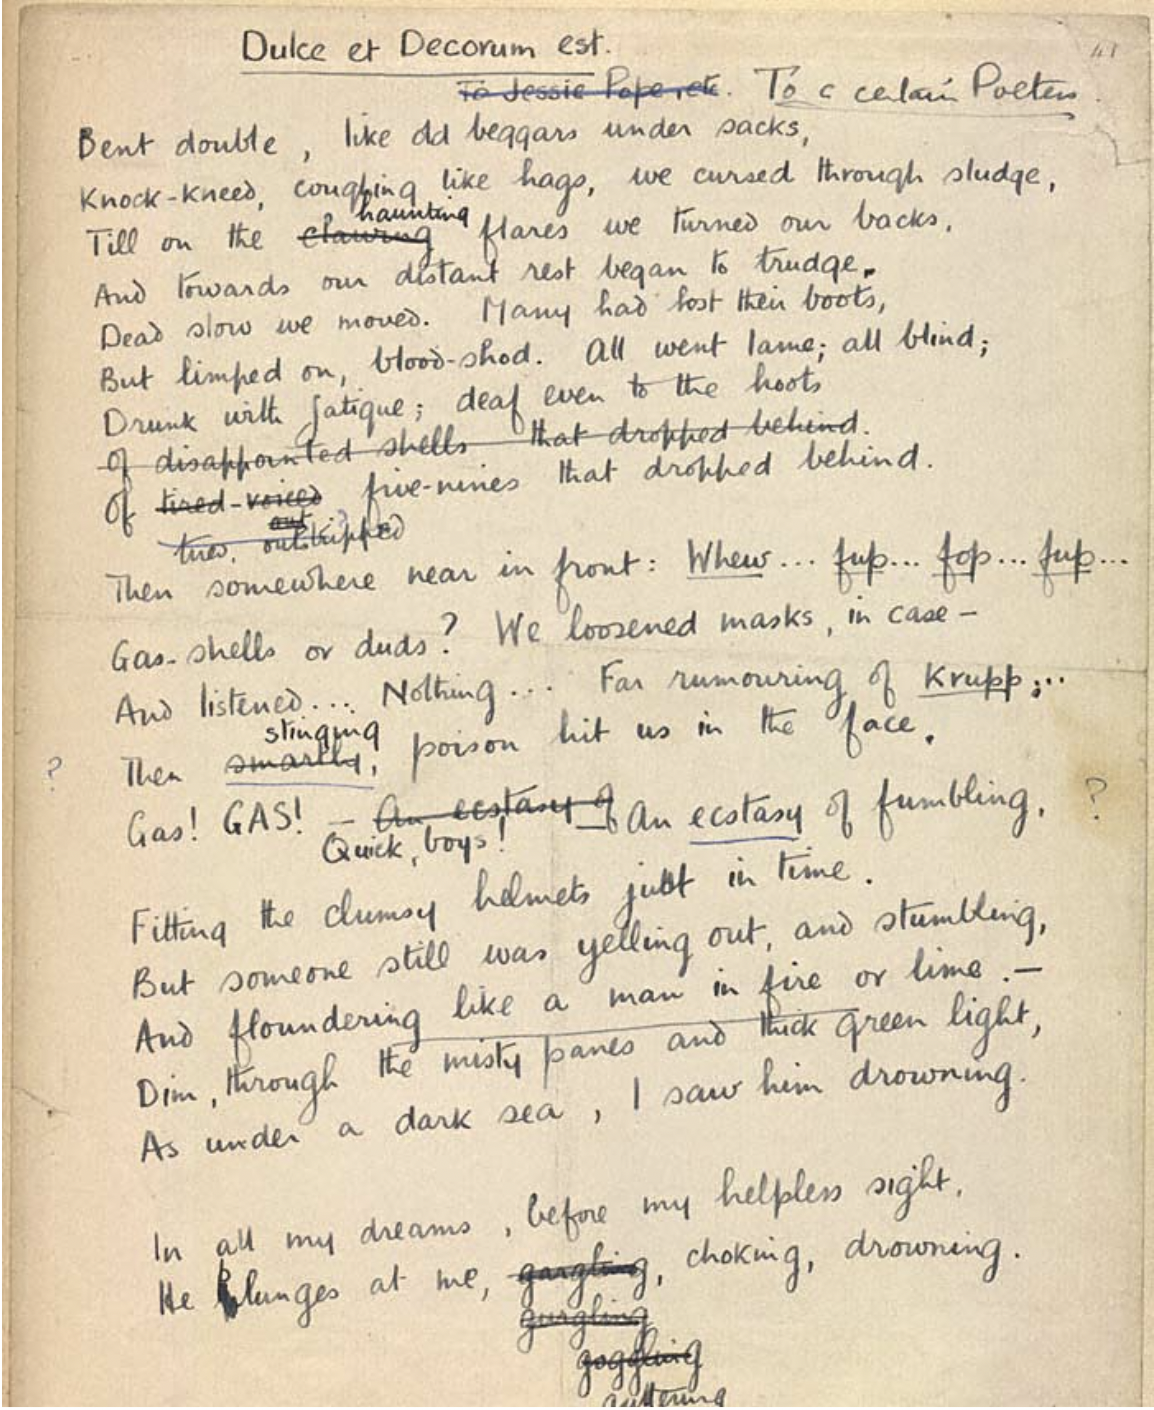 41
Dulce et Decorum est.
To Jessie Pope etc. To a certain Poetess.
Bent double, like old beggars under sacks,
Knock-kneed, coughing like hags, we cursed through sludge,
haunting
Till on the clawing flares we turned our backs,
And towards our distant rest began to trudge.
Dead slow we moved. Many had lost their boots,
But limped on, blood-shod. All went lame; all blind;
Drunk with fatigue; deaf even to the hoots
Of disappointed shells that dropped behind.
Of tired-voiced five-nines that dropped behind.
out
tired, outstripped
Then somewhere near in front: Whew... fup... fop... fup...
Gas-shells or duds? We loosened masks, in case -
And listened.... Nothing... Far rumouring of Krupp;..
stinging
? Then smartly, poison hit us in the face.
Gas! GAS! - An ecstasy of - An ecstasy of fumbling, ?
Quick, boys!
Fitting the clumsy helmets just in time.
But someone still was yelling out, and stumbling,
And floundering like a man in fire or lime.-
Dim, through the misty panes and thick green light,
As under a dark sea, I saw him drowning.
In all my dreams, before my helpless sight,
He plunges at me, gargling, choking, drowning.
gurgling
goggling
guttering